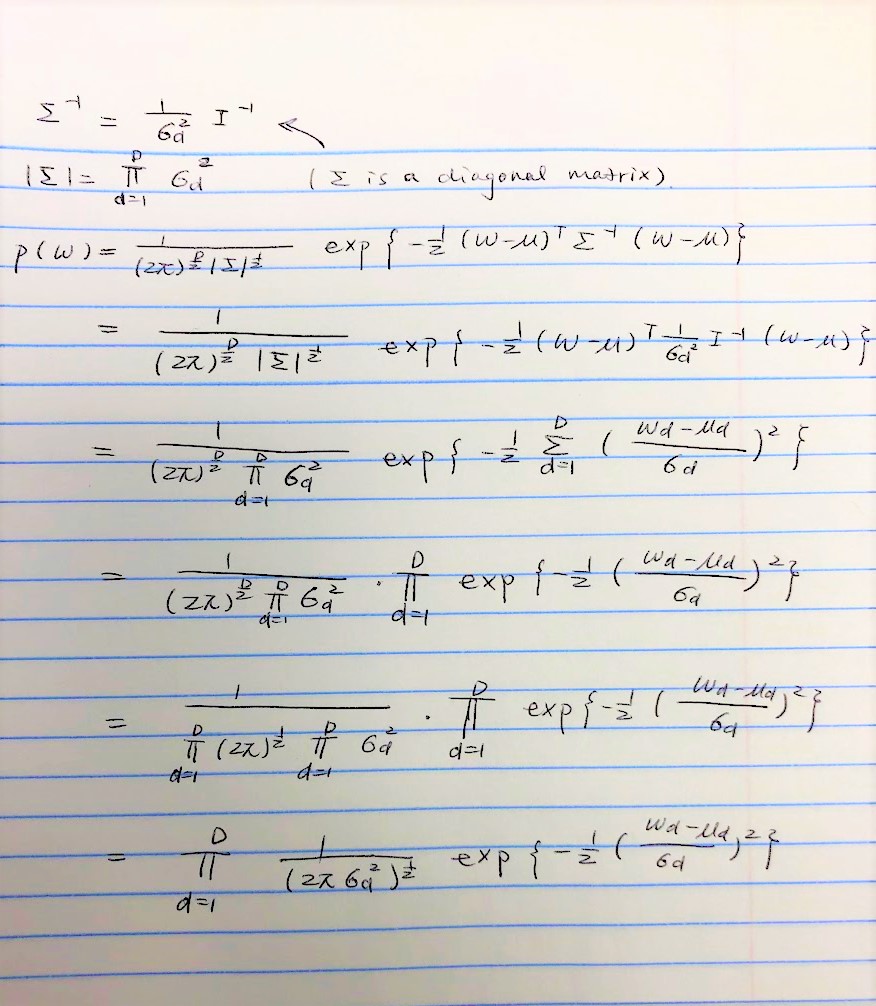 Σ⁻¹ = 1/σd² I⁻¹
|Σ| = ∏_{d=1}^{D} σd² (Σ is a diagonal matrix).
p(w) = 1/((2π)^{D/2} |Σ|^{1/2}) exp{-1/2 (w-μ)ᵀ Σ⁻¹ (w-μ)}
= 1/((2π)^{D/2} |Σ|^{1/2}) exp{-1/2 (w-μ)ᵀ 1/σd² I⁻¹ (w-μ)}
= 1/((2π)^{D/2} ∏_{d=1}^{D} σd²) exp{-1/2 Σ_{d=1}^{D} ((wd-μd)/σd)²}
= 1/((2π)^{D/2} ∏_{d=1}^{D} σd²) · ∏_{d=1}^{D} exp{-1/2 ((wd-μd)/σd)²}
= 1/(∏_{d=1}^{D} (2π)^{1/2} ∏_{d=1}^{D} σd²) · ∏_{d=1}^{D} exp{-1/2 ((wd-μd)/σd)²}
= ∏_{d=1}^{D} 1/(2πσd²)^{1/2} exp{-1/2 ((wd-μd)/σd)²}